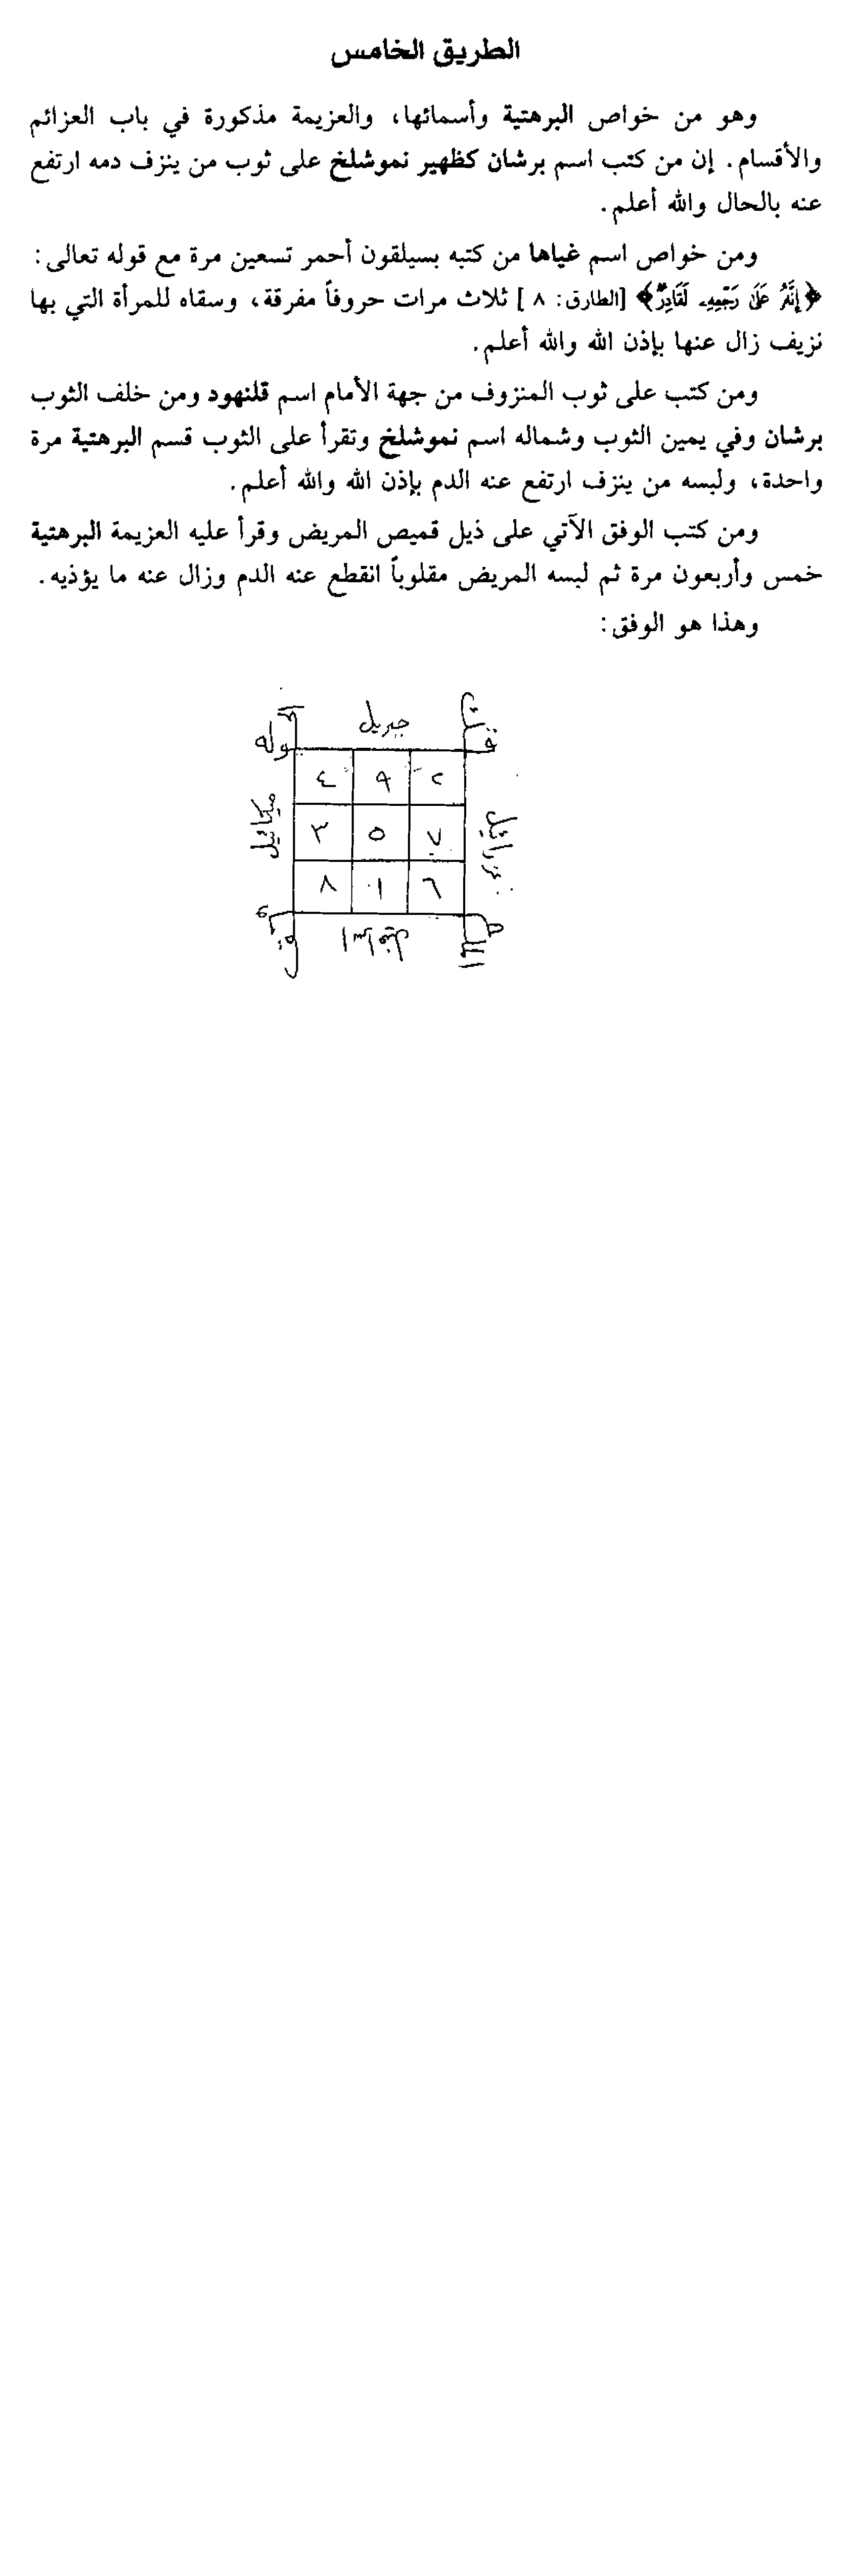 الطريق الخامس
وهو من خواص البرهتية وأسمائها، والعزيمة مذكورة في باب العزائم
والأقسام. إن من كتب اسم برشان كظهير نموشلخ على ثوب من ينزف دمه ارتفع
عنه بالحال والله أعلم.
ومن خواص اسم غياها من كتبه بسيلقون أحمر تسعين مرة مع قوله تعالى:
﴿إِنَّهُ عَلَىٰ رَجْعِهِ لَقَادِرٌ﴾ [الطارق: ٨] ثلاث مرات حروفاً مفرقة، وسقاه للمرأة التي بها
نزيف زال عنها بإذن الله والله أعلم.
ومن كتب على ثوب المنزوف من جهة الأمام اسم قلنهود ومن خلف الثوب
برشان وفي يمين الثوب وشماله اسم نموشلخ وتقرأ على الثوب قسم البرهتية مرة
واحدة، ولبسه من ينزف ارتفع عنه الدم بإذن الله والله أعلم.
ومن كتب الوفق الآتي على ذيل قميص المريض وقرأ عليه العزيمة البرهتية
خمس وأربعون مرة ثم لبسه المريض مقلوباً انقطع عنه الدم وزال عنه ما يؤذيه.
وهذا هو الوفق:
جبريل
قوله
٤ ٩ ٢
ميكائيل
عزرائيل
٣ ٥ ٧
٨ ١ ٦
اسرافيل